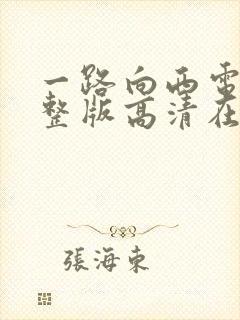 一路向西電
整版高清在
張海東